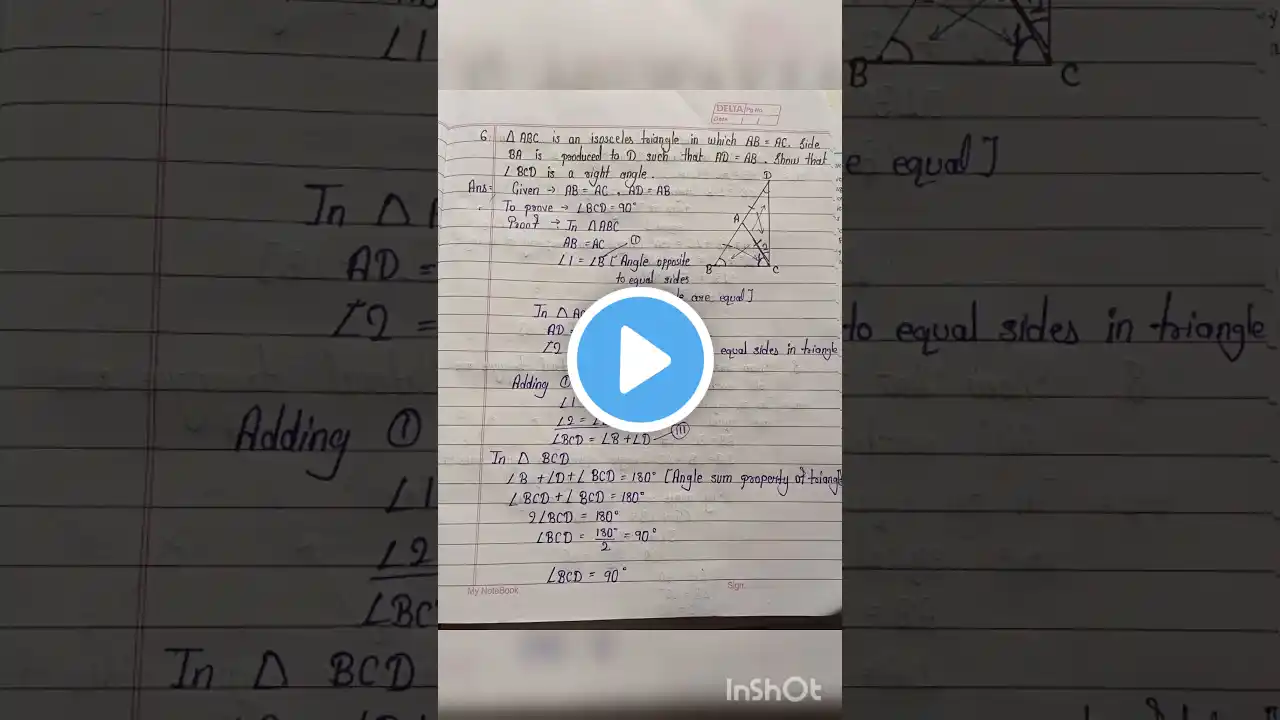 DELTA Pg No.
Date / /
6. Δ ABC is an isosceles triangle in which AB = AC. Side
BA is produced to D such that AD = AB. Show that
∠BCD is a right angle.
Ans: Given → AB = AC, AD = AB
To prove → ∠BCD = 90°
Proof → In ΔABC
AB = AC
∠1 = ∠B [Angle opposite ①
to equal sides
are equal]
In Δ
AD =
∠2 equal sides in triangle
Adding ①
∠1
∠2 =
∠BCD = ∠B + ∠D — (III)
In Δ BCD
∠B + ∠D + ∠BCD = 180° [Angle sum property of triangle
∠BCD + ∠BCD = 180°
2∠BCD = 180°
∠BCD = 180°/2 = 90°
∠BCD = 90°
My NoteBook Sign.
D
A
2
1
B C
∠1
B C
are equal]
In Δ
AD =
∠2 = to equal sides in triangle
Adding ①
∠1
∠2
∠BC
In Δ BCD
InShOt